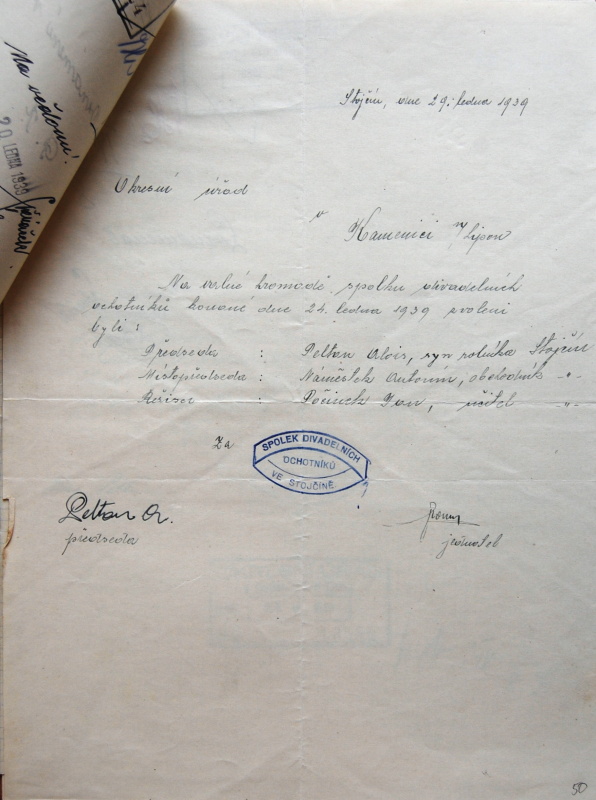 Na vědomí.
20 LEDNA 1939
Stojčín, dne 29. ledna 1939
Okresní úřad
v
Kamenici n/Lipou
Na valné hromadě, spolku divadelních
ochotníků konané dne 24. ledna 1939 zvoleni
byli :
Předseda : Peltan Alois, syn rolníka Stojčín
Místopředseda : Náměstek Antonín, obchodník -"-
Režisér : Počinek Jan, učitel -"-
Za
SPOLEK DIVADELNÍCH
OCHOTNÍKŮ
VE STOJČÍNĚ
Peltan A.
předseda
jednatel
50